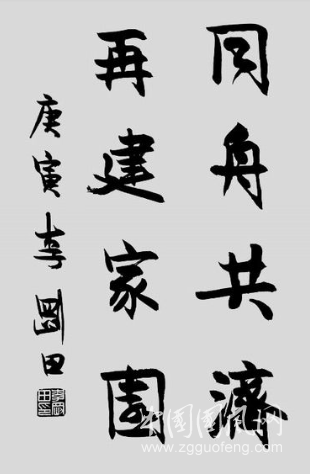 同舟共濟
再建家園
庚寅李剛田
中国国风网
www.zgguofeng.com